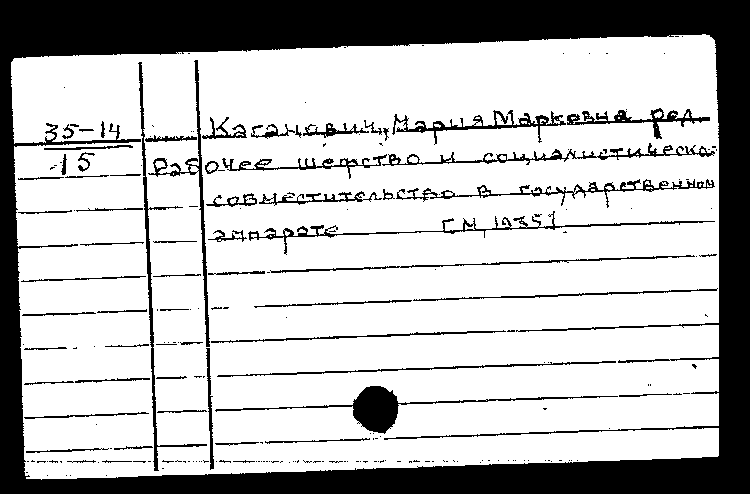 35-14
15
Каганович, Мария Марковна ред.
Рабочее шефство и социалистическо
совместительство в государственном
аппарате [М, 1935]